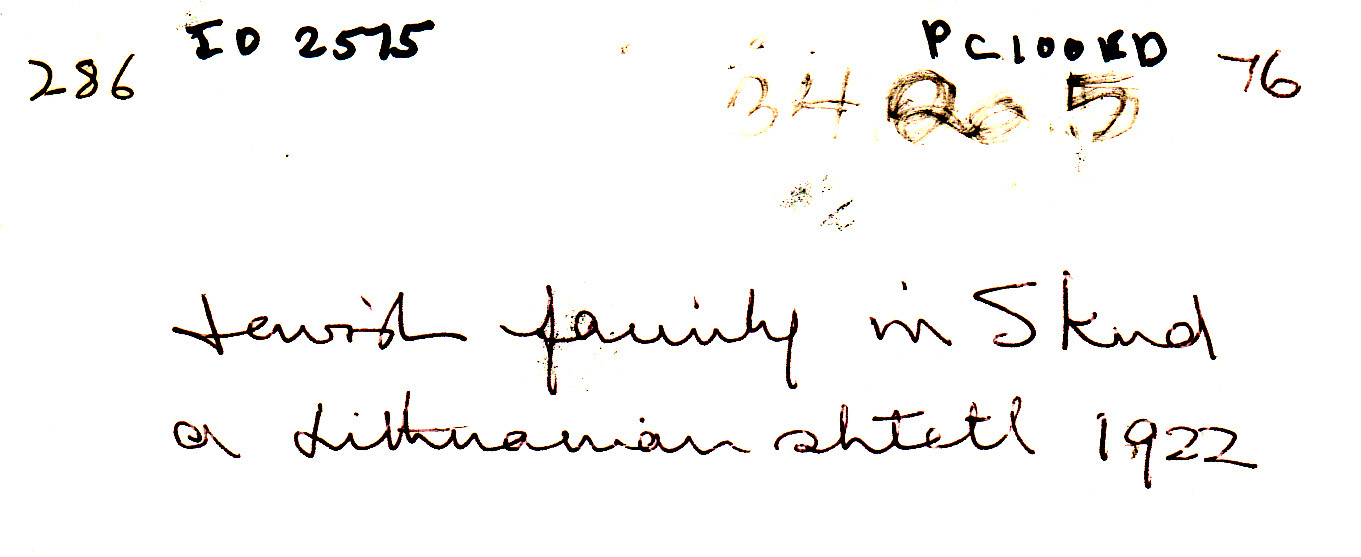 ID 2575 PC100KD
286 76
34 20.5
Jewish family in Skud
a Lithuanian shtetl 1922